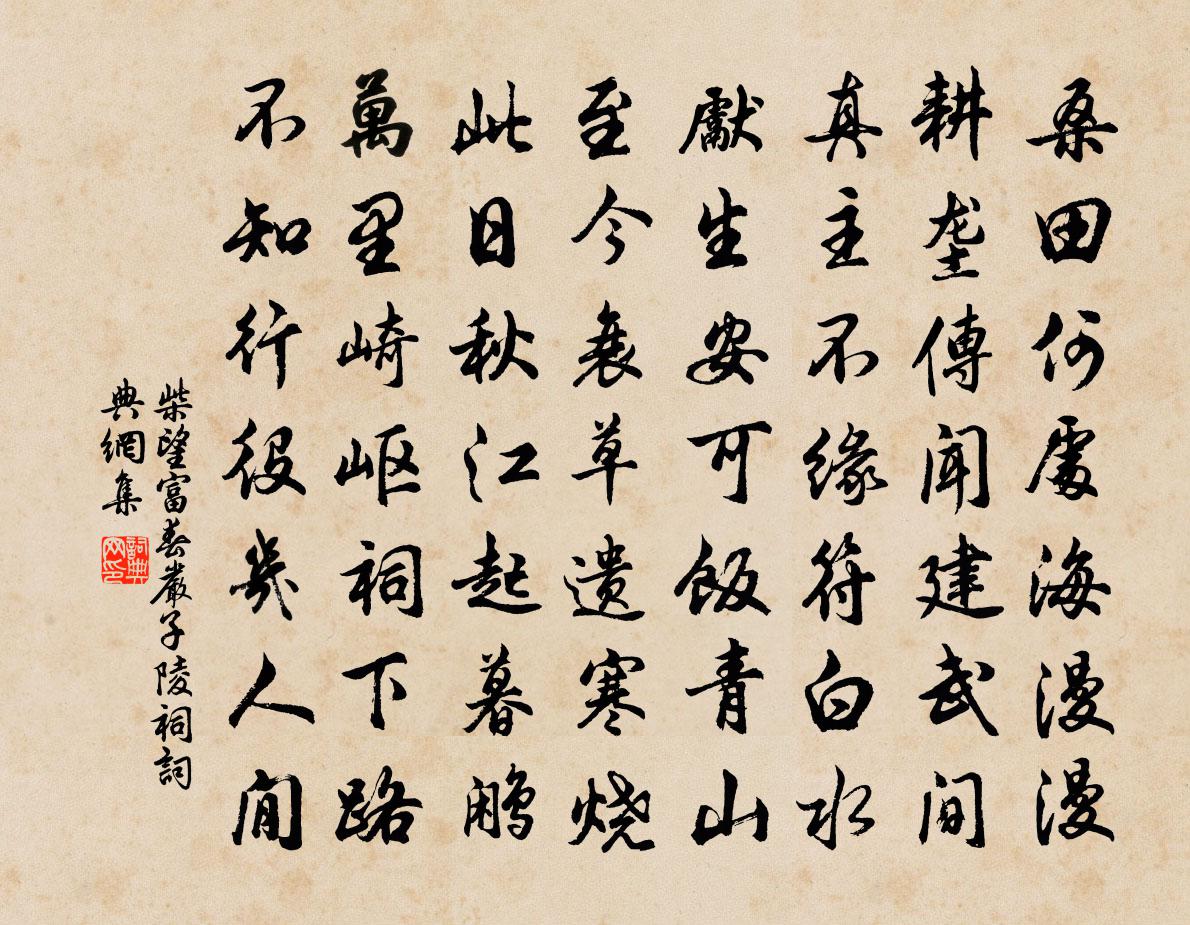 桑田何處海漫漫
耕壟傳聞建武間
真主不緣符白水
獻生安可飯青山
至今衰草遺寒燒
此日秋江起暮鷴
萬里崎嶇祠下路
不知行役幾人閒
柴望富春嚴子陵祠詞
典網集
詞典
网印